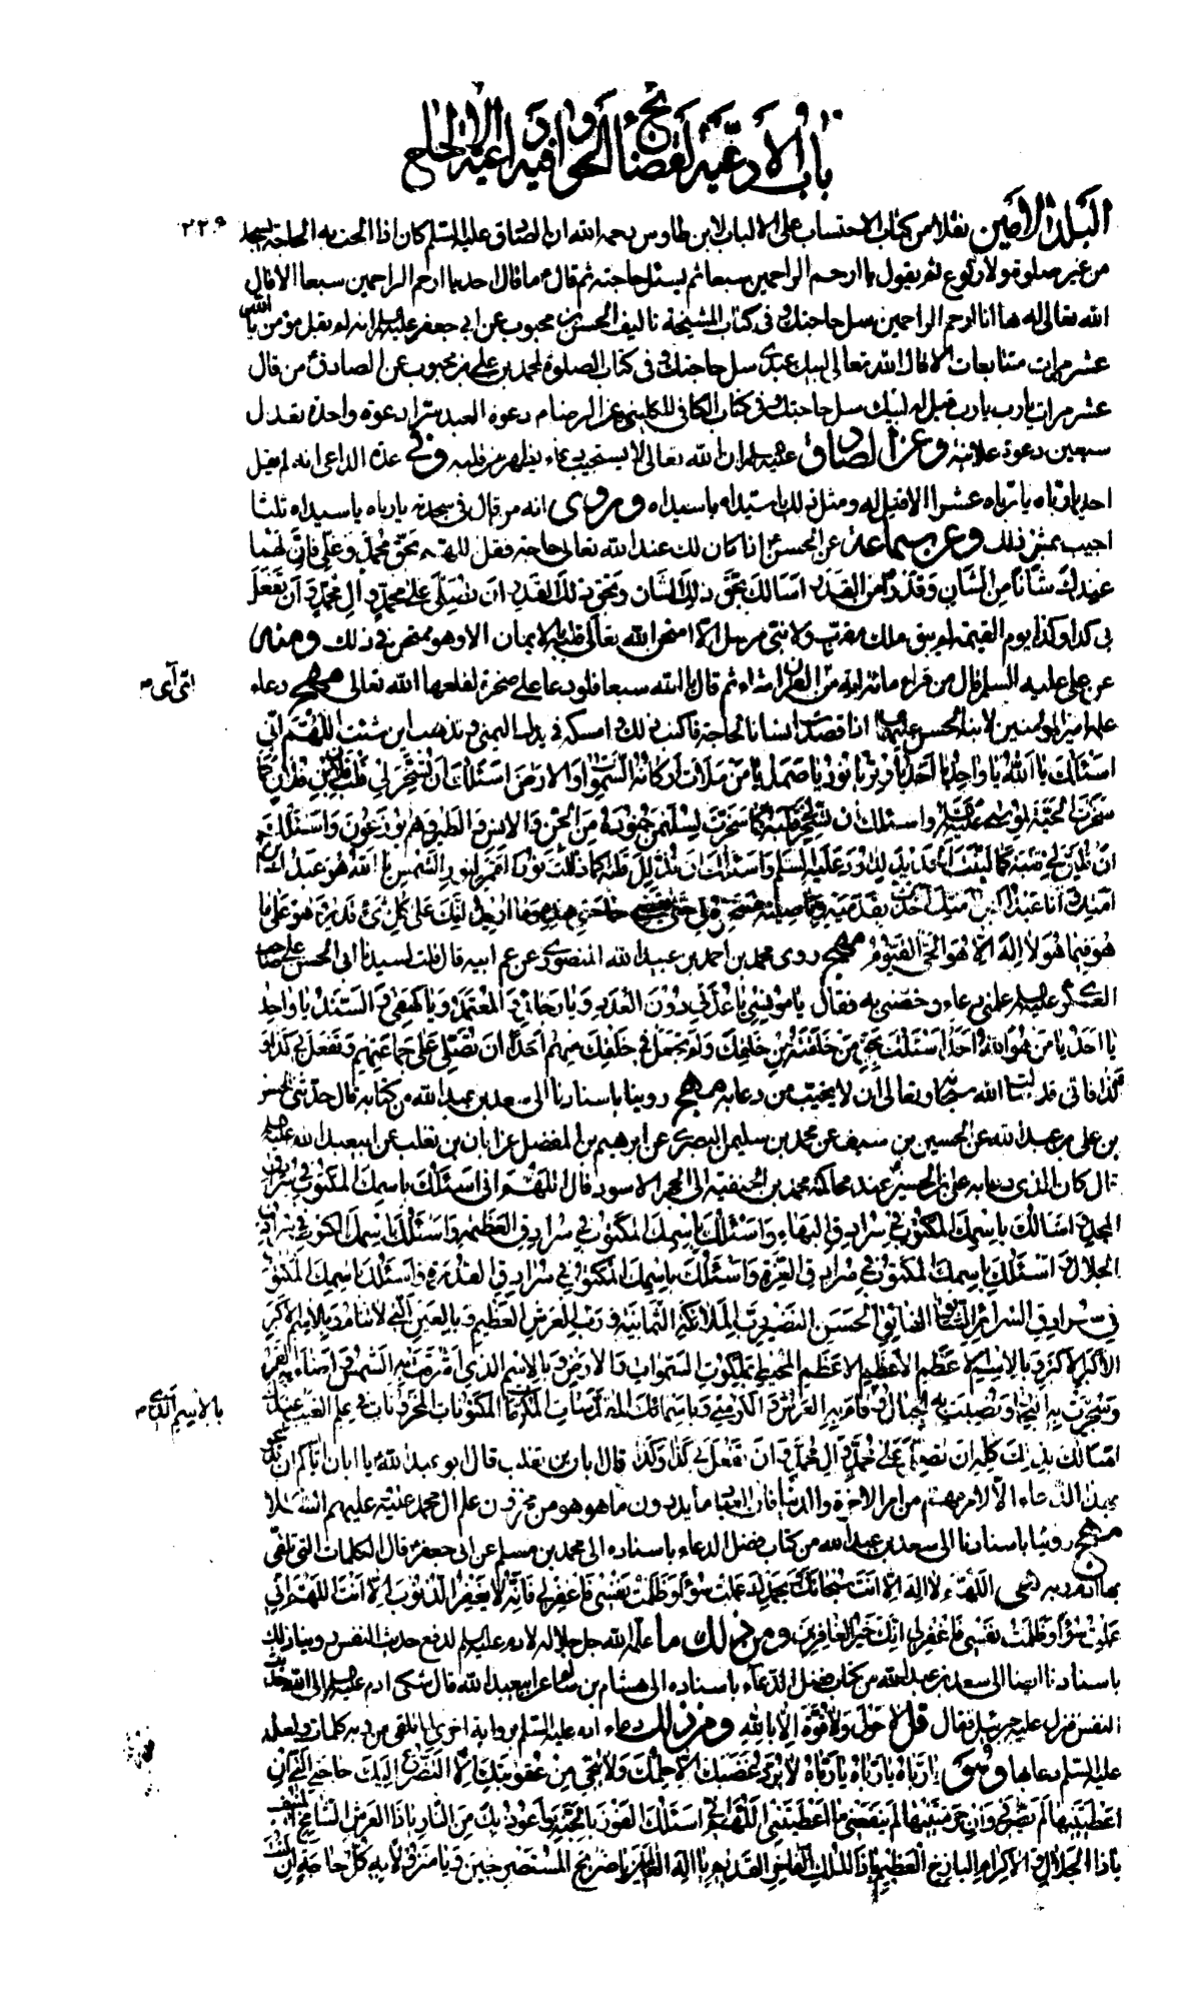 باب الأدعية لقضاء الحوائج وفيه أدعية الإلحاح
البلد الامين نقلا من كتاب الاحتساب على الالباب لابن طاوس رحمه الله ان الصادق عليه السلم كان اذا الحت به الحاجة يسجد
٢٢٩
من غير صلوة ولا ركوع ثم يقول يا ارحم الراحمين سبعا ثم يسئل حاجته ثم قال ما قال احد يا ارحم الراحمين سبعا الا قال
الله تعالى له ها انا ارحم الراحمين سل حاجتك وفى كتاب المشيخة تاليف الحسن بن محبوب عن ابى جعفر عليه السلم انه لم يقل مؤمن يا الله
عشر مرات متتابعات الا قال الله تعالى لبيك عبدى سل حاجتك وفى كتاب الصلوة لمحمد بن على بن محبوب عن الصادق من قال
عشر مرات يا رب يا رب قيل له لبيك سل حاجتك وفى كتاب الكافى للكلينى عن الرضا م دعوة العبد سرا دعوة واحدة تعدل
سبعين دعوة علانية وعن الصادق عليه السلم ان الله تعالى لا يستجيب دعاء بظهر قلب وفى عدة الداعى انه لم يقل
احد يا رباه يا رباه عشرا الا قيل له ومثل ذلك يا سيداه يا سيداه وروى انه من قال فى سجدته يا رباه يا سيداه ثلثا
اجيب بمثل ذلك وعن سماعة عن ابى الحسن اذا كان لك عند الله تعالى حاجة فقل اللهم بحق محمد وعلى فان لهما
عندك شانا من الشان وقدرا من القدر اسالك بحق ذلك الشان وبحق ذلك القدر ان تصلى على محمد وال محمد وان تفعل
بى كذا وكذا يوم القيمة لم يبق ملك مقرب ولا نبى مرسل الا امتحن الله تعالى قلبه للايمان الا وهو ممتحن فى ذلك ومنه
عن على عليه السلم قال من قراء مائة اية من القران شاء ثم قال يا الله سبعا فلو دعا على صخرة لفلعها الله تعالى مهج دعاء
علمه امير المؤمنين لابنه الحسن عليهما اذا قصدت انسانا لحاجة فاكتب ذلك وامسكه فى يدك اليمنى وتذهب اين شئت اللهم انى
اسئلك يا الله يا واحد يا احد يا وتر يا نور يا صمد يا من ملأت اركانه السموات والارض اسئلك ان تسخر لى قلب فلان بن فلان كما
سخرت الحية لموسى عليه السلم واسئلك ان تسخر لى قلبه كما سخرت لسليمن جنوده من الجن والانس والطير فهم يوزعون واسئلك
ان تلين لى قلبه كما لينت الحديد لداود عليه السلم واسئلك ان تذلل لى قلبه كما ذللت نور القمر لنور الشمس يا الله هو عبدك ابن
امتك وانا عبدك ابن امتك اخذت بقدميه وبناصيته فسخره لى حتى يقضى حاجتى هذه وما اريد انك على كل شىء قدير وهو على ما
هو فيما هو لا اله الا هو الحى القيوم مهج روى محمد بن احمد بن عبيد الله المنصورى عن عم ابيه قال قلت لسيدنا ابى الحسن على صاحب
العسكر عليه السلم علمنى دعاء وخصنى به فقال يا مونسى يا عدتى دون العدد ويا رجائى والمعتمد ويا كهفى والسند يا واحد
يا احد يا من هو قل هو الله احد اسئلك بحق من خلقته من خلقك ولم تجعل فى خلقك مثلهم احدا ان تصلى على جماعتهم وتفعل بى كذا و
كذا فانى قد سئلت الله سبحانه وتعالى ان لا يخيب من دعا به مهج روينا باسنادنا الى سعد بن عبد الله من كتابه قال حدثنى الحسن
بن على بن عبد الله عن الحسين بن سيف عن محمد بن سليمن البصرى عن ابرهيم بن المفضل عن ابان بن تغلب عن ابيعبد الله عليه السلم
قال كان الذى دعا به على بن الحسين عند محاكمة محمد بن الحنفية الى الحجر الاسود قال اللهم انى اسئلك باسمك المكتوب فى سرادق
المجد اسالك باسمك المكتوب فى سرادق البهاء واسئلك باسمك المكتوب فى سرادق العظمة واسئلك باسمك المكتوب فى سرادق
الجلال واسئلك باسمك المكتوب فى سرادق العزة واسئلك باسمك المكتوب فى سرادق القدرة واسئلك باسمك المكتوب
فى سرادق السرائر السابق الفائق الحسن النضير رب الملائكة الثمانية ورب العرش العظيم وبالعين التى لا تنام وبالاسم الاكبر
الاكبر الاكبر وبالاسم الاعظم الاعظم الاعظم المحيط بملكوت السموات والارض وبالاسم الذى اشرقت به الشمس واضاء به القمر
وسجرت به البحار ونصبت به الجبال وقام به العرش والكرسى وباسمائك المقدسات المكرمات المكنونات المخزونات فى علم الغيب عندك
اسئلك بذلك كله ان تصلى على محمد وال محمد وان تفعل بى كذا وكذا قال ابان بن تغلب قال ابو عبد الله يا ابان اياكم ان تدعوا
بهذا الدعاء الا لامر مهم من امر الاخرة والدنيا فان العباد ما يدرون ما هو هو من مخزون علم ال محمد عليه عليهم السلام
مهج روينا باسنادنا الى سعد بن عبد الله من كتاب فضل الدعاء باسناده الى محمد بن مسلم عن ابى جعفر قال الكلمات التى تلقى
بها ادم ربه هى اللهم لا اله الا انت سبحانك وبحمدك عملت سوء وظلمت نفسى فاغفر لى فانه لا يغفر الذنوب الا انت اللهم انى
عملت سوء وظلمت نفسى فاغفر لى انك خير الغافرين ومن ذلك ما علمه الله جل جلاله لادم عليه السلم لدفع حديث النفس روينا ذلك
باسنادنا ايضا الى سعد بن عبد الله من كتاب فضل الدعاء باسناده الى هشام بن سالم عن ابيعبد الله قال شكى ادم عليه السلم الى الله حديث
النفس فنزل عليه جبرئيل فقال قل لا حول ولا قوة الا بالله ومن ذلك دعاء ادم عليه السلم برواية اخرى لما تلقى من ربه كلمات ولعله
عليه السلم دعا بها وهو يا رباه يا رباه يا رباه لا يرد غضبك الا حلمك ولا ينجى من عقوبتك الا التضرع اليك حاجتى التى ان
اعطيتنيها لم يضرنى وان حرمتنيها لم ينفعنى ما اعطيتنى اللهم انى اسئلك الفوز بالجنة واعوذ بك من النار يا ذا العرش الشامخ المنيف
يا ذا الجلال والاكرام الباذخ العظيم يا ذا الملك الفاخر القديم يا اله العالمين يا صريخ المستصرخين ويا منزولا به كل حاجة ان كنت
اىّ آى م
بالاسم الذى م